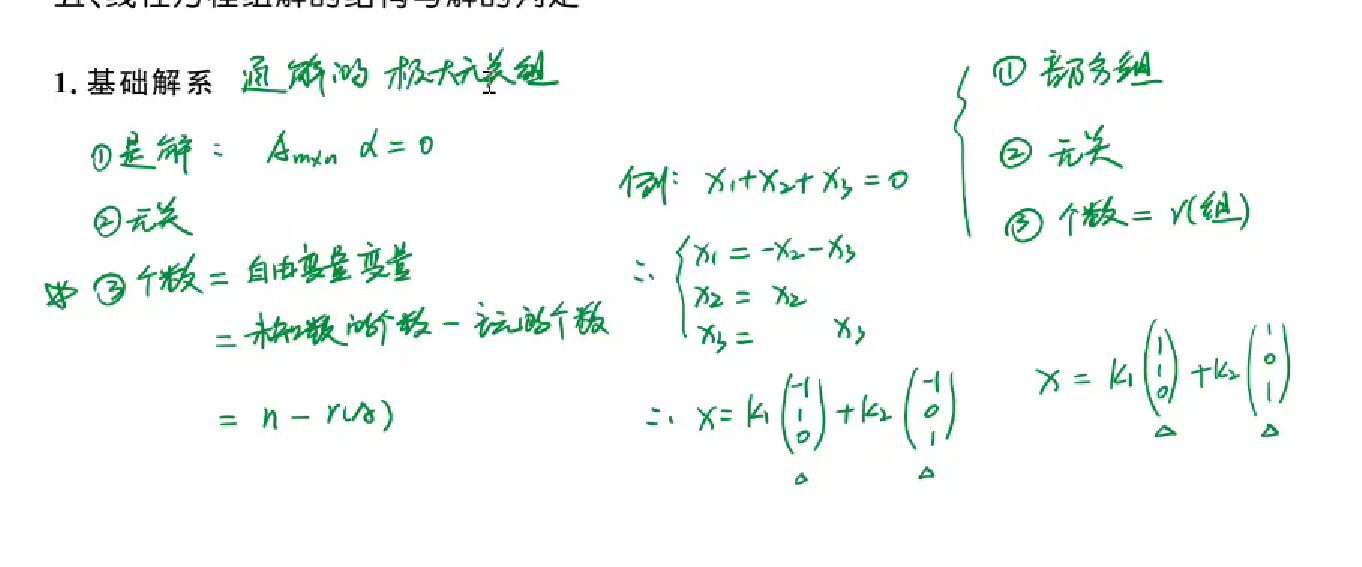 五、线性方程组解的结构与解的判定
1. 基础解系 通解的极大无关组
①是解: Aₘₓₙ α = 0
②无关
※ ③个数 = 自由变量变量
= 未知数的个数 - 主元的个数
= n - r(A)
例: x₁+x₂+x₃=0
∴ { x₁ = -x₂-x₃
x₂ = x₂
x₃ = x₃
∴ x = k₁ (-1 1 0) + k₂ (-1 0 1)
△ △
{ ① 部分组
② 无关
③ 个数 = r(组)
x = k₁ (1 1 0) + k₂ (1 0 1)
△ △